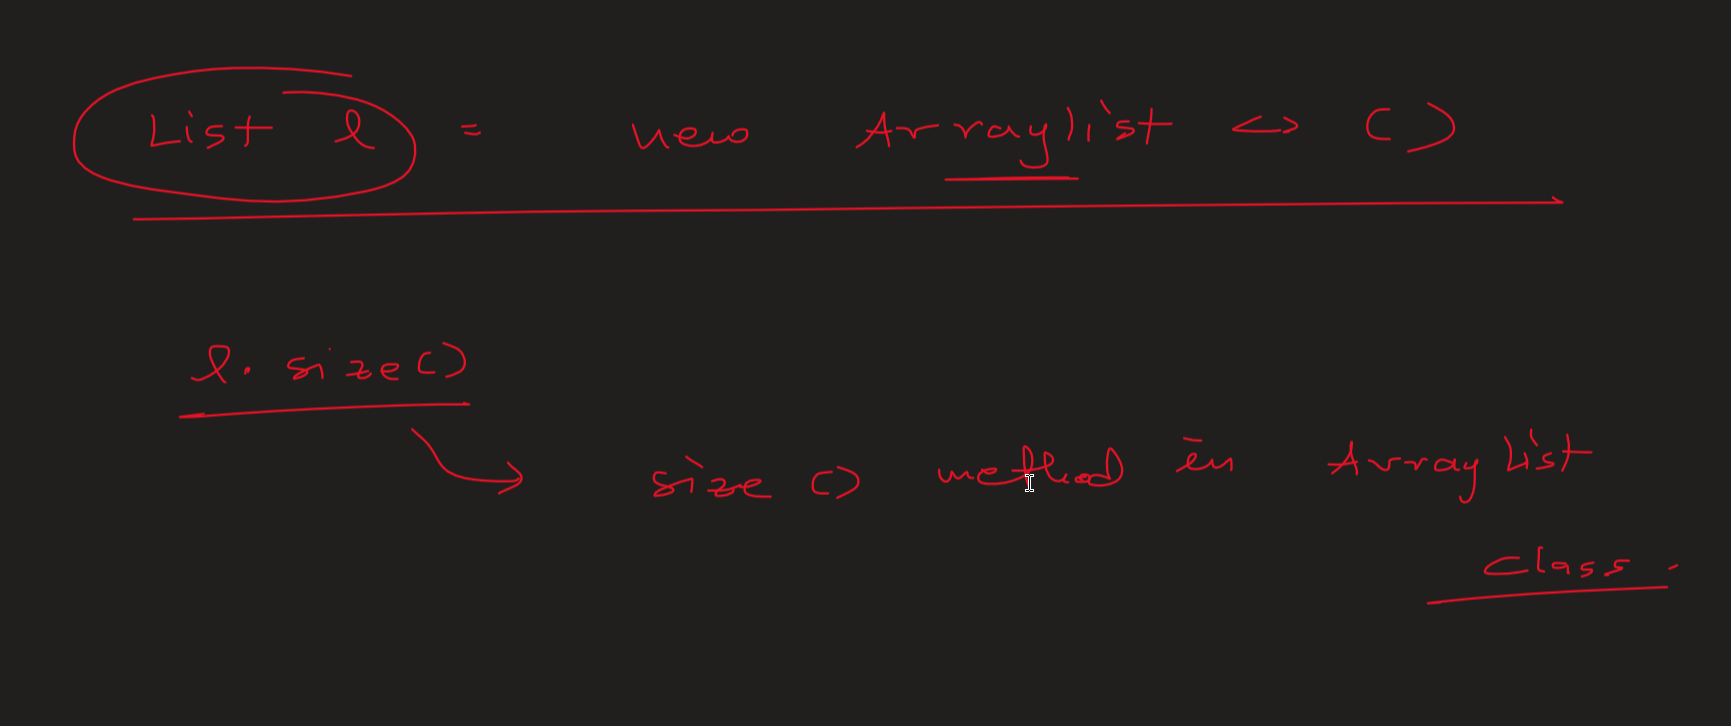 List l = new Arraylist <> ()
l. size()
size () method in ArrayList
class.